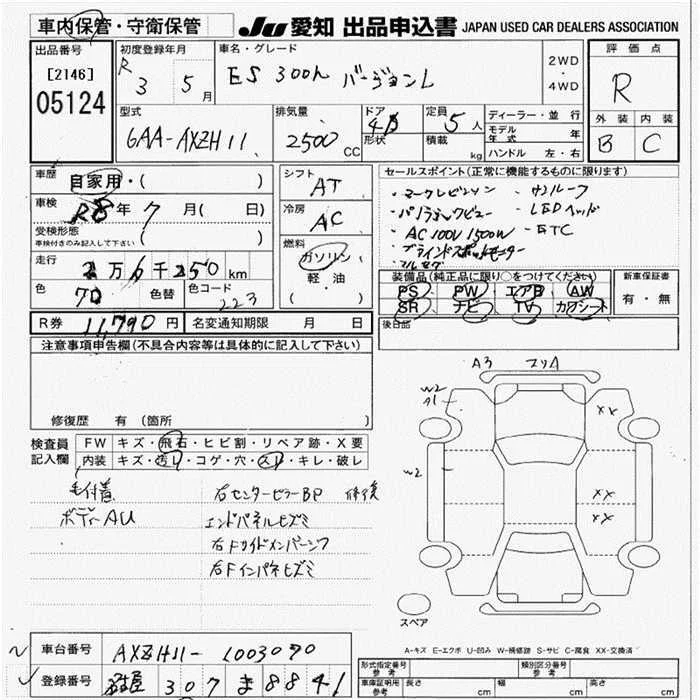 車内保管・守衛保管
JU 愛知 出品申込書 JAPAN USED CAR DEALERS ASSOCIATION
出品番号
[2146]
05124
初度登録年月
R 3 5月
車名・グレード
ES 300h バージョンL
2WD
・
4WD
評価点
R
外装 内装
B C
型式
6AA-AXZH11
排気量
2500 CC
ドア
形状
4D
定員
5人
積載
kg
ディーラー・並行
モデル年式 年
ハンドル 左・右
車歴
自家用・( )
車検
R8年 7月( 日)
受検形態
車検付きのみ記入して下さい ( )
走行
2万6千250km
色
70
色替
色コード
223
R券 11,790円
名変通知期限 月 日
シフト
AT
冷房
AC
燃料
ガソリン
軽・油
( )
セールスポイント(正常に機能するものに限ります)
・マークレビンソン ・サンルーフ
・パノラミックビュー ・LEDヘッド
・AC100V 1500W ・ETC
・ブラインドスポットモニター
・フルセグ
装備品(純正品に限り○をつけてください)
PS PW エアB AW
SR ナビ TV カワシート
新車保証書
有・無
後日品
注意事項申告欄(不具合内容等は具体的に記入して下さい)
修復歴 有 (箇所
検査員
記入欄
FW キズ・飛石・ヒビ割・リペア跡・X要
内装 キズ・汚れ・コゲ・穴・スレ・キレ・破レ
毛付着
ボディーAU
右センターピラーBP 修復
エンドパネルヒズミ
右Fサイドメンバーシワ
右Fインパネヒズミ
A3
W2
A1
W2
XX
XX
XX
スペア
A-キズ E-エクボ U-凹み W-補修跡 S-サビ C-腐食 XX-交換済
車台番号 AXZH11-1003070
登録番号 名古屋 307 ま 8841
形式指定番号
参考
類別区分番号
参考
車庫証明用
参考
長さ cm
幅 cm
高さ cm